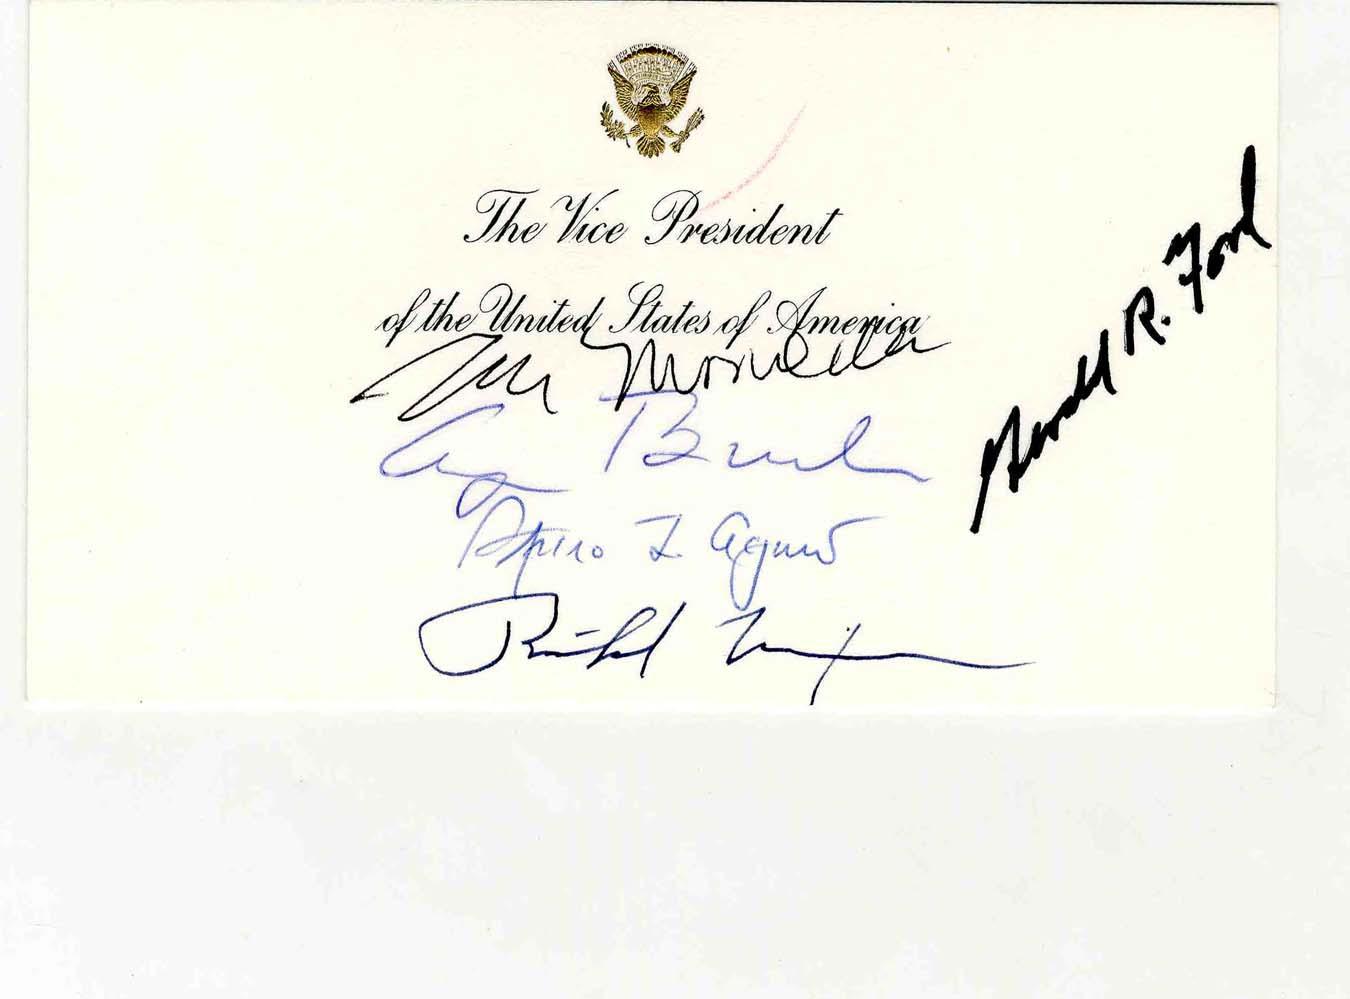 The Vice President
of the United States of America
Walter Mondale
George Bush
Spiro T Agnew
Richard Nixon
Gerald R. Ford